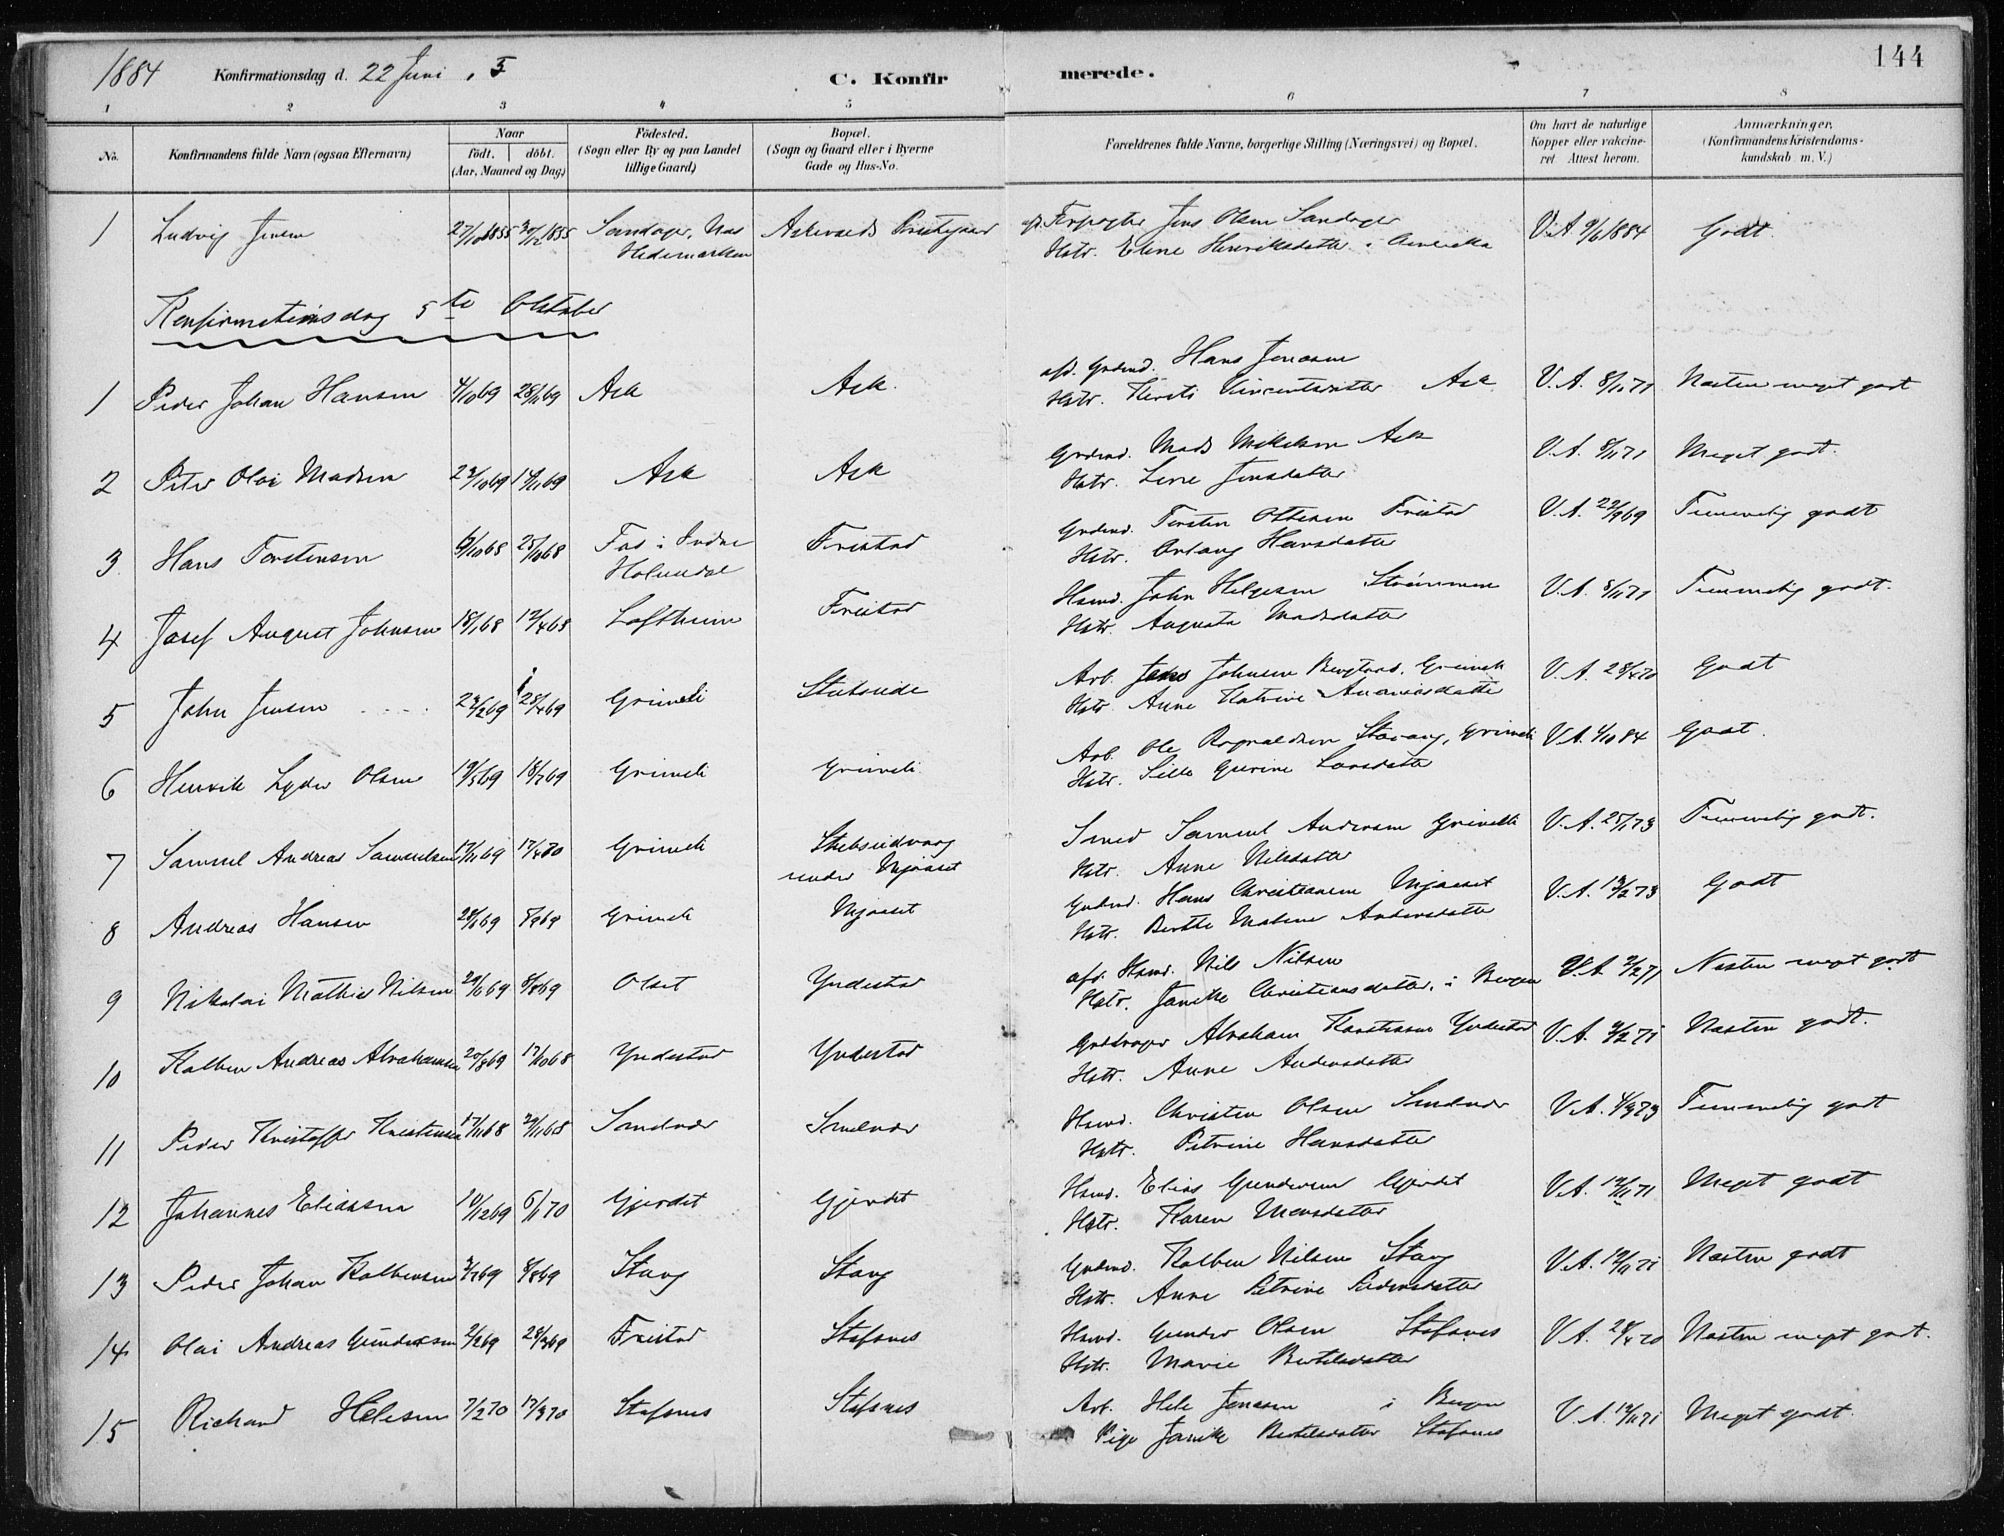 1884 Konfirmationsdag d. 22 Juni . C. Konfirmerede. 144
1 2 3 4 5 6 7 8
No. Konfirmandens fulde Navn (ogsaa Efternavn) Naar født. døbt. (Aar, Maaned og Dag) Fødested. (Sogn eller By og paa Landet tillige Gaard) Bopæl. (Sogn og Gaard eller i Byerne Gade og Hus-No. Forældrenes fulde Navne, borgerlige Stilling (Næringsvei) og Bopæl. Om havt de naturlige Kopper eller vakcineret Attest herom. Anmærkninger. (Konfirmandens Kristendomskundskab m. V.)
1 Ludvig Jensen 27/10 1855 30/12 1855 Sandager, Nas Askevolds Jens Olsen Sandager V.A. 9/6 1884 Godt
Hedemarken Hstr. Eline Henriksdatter i Amerika
Konfirmationsdag 5te Oktober
1 Peder Johan Hansen 4/10 69 28/11 69 Ask Ask. afd. Grdmd. Hans Jonassen V.A. 8/11 71 Næsten meget godt
Hstr. Kirsti Vincentsdatter Ask
2 Peter Olai Madsen Ask Ask Grdmd. Mads Mikelsen Ask V.A. 8/11 71 Meget godt.
Hstr. Lene Jensdatter
3 Hans Torstensen 6/10 68 25/10 68 Fos i Indre Fristad Grdmd. Torsten Ottesen Fristad V.A. 22/9 69 Temmelig godt
Holmedal Hstr. Hansdatter
4 Josef August Johnsen 18/1 68 12/4 68 Loftheim Fristad Hsmd. John Helgesen Strømmen V.A. 8/11 71 Temmelig godt.
Hstr. Augusta Madsdatter
5 John Jensen 28/4 69 Grimeli Stubseide Arb. Jens Johnsen Grimeli V.A. 28/4 70 Godt
Hstr. Anne Katrine Ananiasdatter
6 Henrik Lyder Olsen 19/5 69 18/7 69 Grimeli Grimeli Arb. Ole Ragnaldsen Stavang, Grimeli V.A. 4/10 84 Godt.
Hstr. Sille Larsdatter
7 Samuel Andreas Samuelsen 17/11 69 17/4 70 Grimeli Stubseidvaag Smed Samuel Andersen Grimeli V.A. 25/1 73 Temmelig godt.
under Mjaaset Hstr. Anne Nilsdatter
8 Andreas Hansen Grimeli Mjaaset Grdmd. Hans Christiansen Mjaaset V.A. 13/2 73 Godt
Hstr. Berthe Malene Andersdatter
9 Nikolai Mathias Nilsen 20/6 69 8/8 69 Olset Yndestad afd. Hsmd. Nils Nilsen V.A. 2/2 71 Næsten meget godt
Hstr. Janikke Christiansdatter, i Bergen
10 Kolben Andreas Abrahamsen Yndestad Yndestad Abraham Yndestad V.A. 9/2 71 Næsten godt.
Hstr. Anne Andersdatter
11 Peder Kristoffer Kristensen 17/11 68 29/11 68 Smelvær Smelvær Hsmd. Christen Olsen Smelvær V.A. 4/3 73 Temmelig godt
Hstr. Petrine Hansdatter
12 Johannes Eliassen 10/12 69 6/1 70 Gjerdet Gjerdet Hsmd. Elias Gundersen Gjerdet V.A. 12/11 71 Meget godt
Hstr. Karen Monsdatter
13 Peder Johan Kolbensen 3/7 69 8/8 69 Stang Stang Grdmd. Kolben Nilsen Stang V.A. 12/11 71 Næsten godt
Hstr. Anne Petrine Pedersdatter
14 Olai Andreas Gundersen 2/2 69 28/3 69 Fristad Stafsnes Hsmd. Gunder Olsen Stafsnes V.A. 28/4 70 Næsten meget godt.
Hstr. Marie Bertelsdatter
15 Richard Helesen 7/2 70 17/3 70 Stafsnes Stafsnes Arb. Hele Jonassen i Bergen V.A. 12/11 71 Meget godt.
Pige Janikke Bertelsdatter Stafsnes